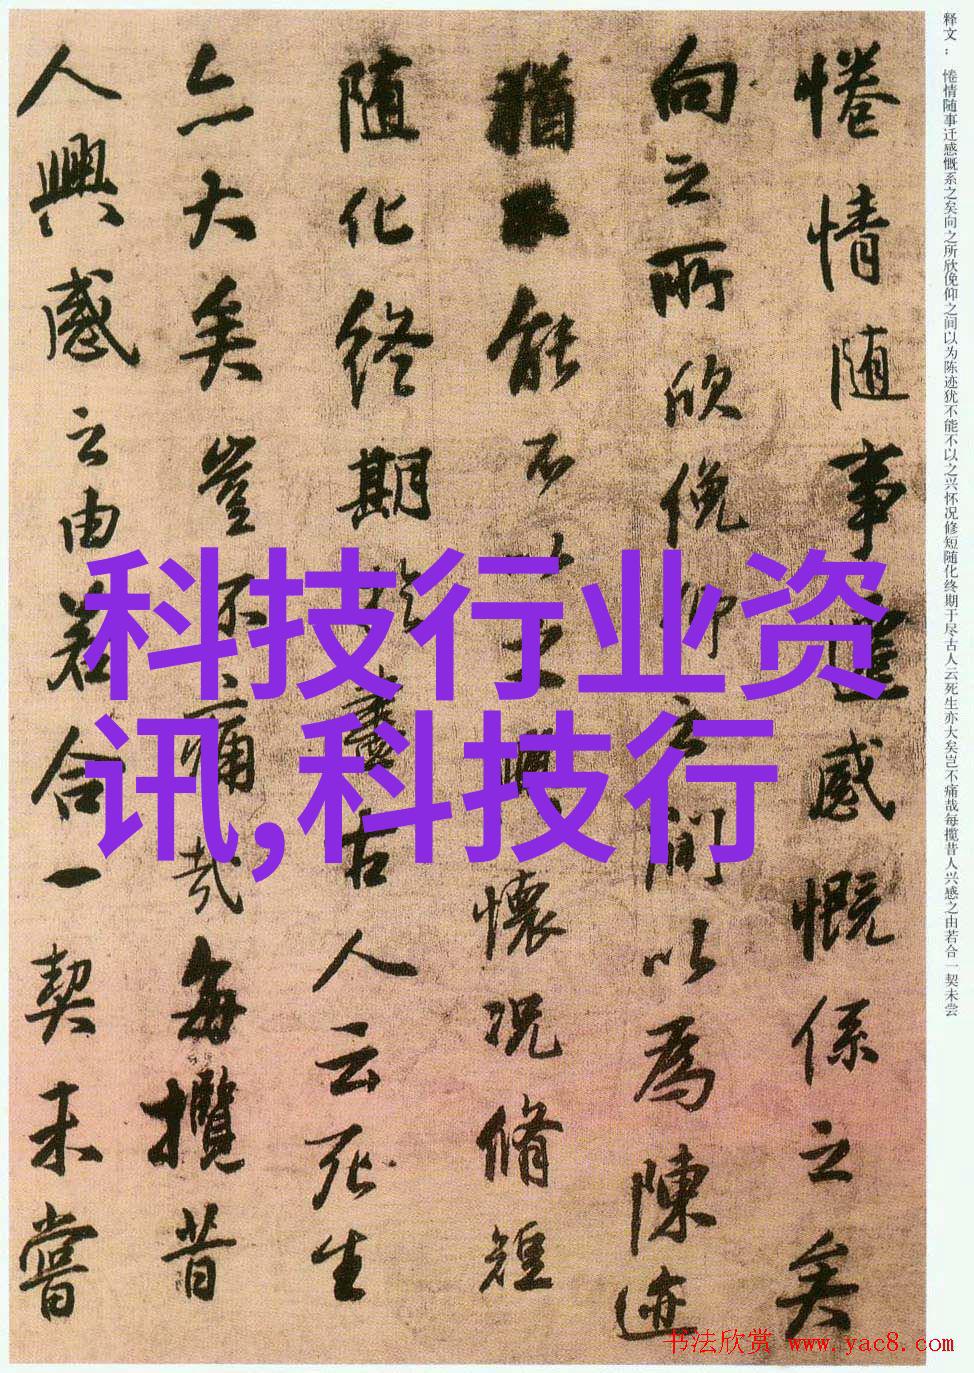 释文：惓情随事迁感慨系之矣向之所欣俛仰之间以为陈迹犹不能不以之兴怀况修短随化终期于尽古人云死生亦大矣岂不痛哉每揽昔人兴感之由若合一契未尝
惓情随事遷感慨係之矣
向之所欣俛仰之間以為陳迹
猶不能不以之興懷况脩短
随化終期於盡古人云死生
亦大矣豈不痛哉每攬昔
人興感之由若合一契未嘗
科技行业资
讯,科技行
书法欣赏 www.yac8.com